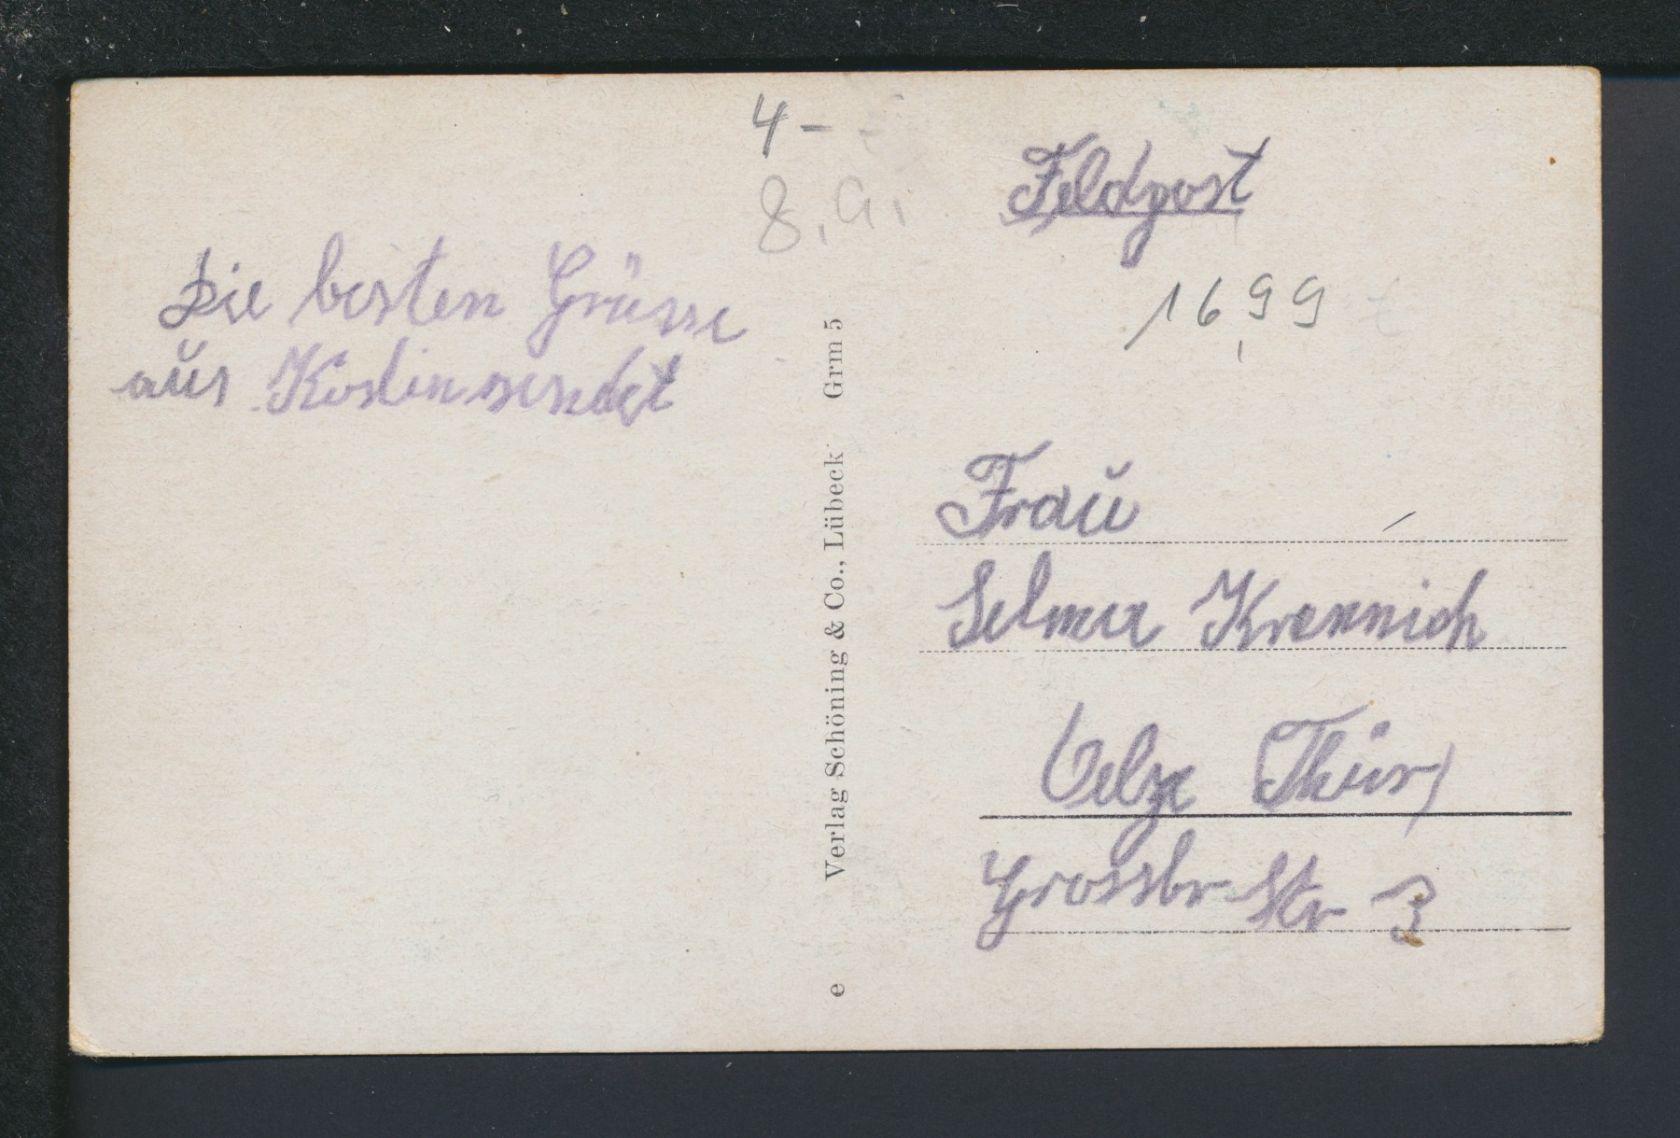 4 -
8,
Feldpost
16,99
Die besten Grüsse
aus Köslin sendet
Verlag Schöning & Co., Lübeck Grm 5
e
Frau
Selma Krannich
Oelze Thür
Grossbr Str 3